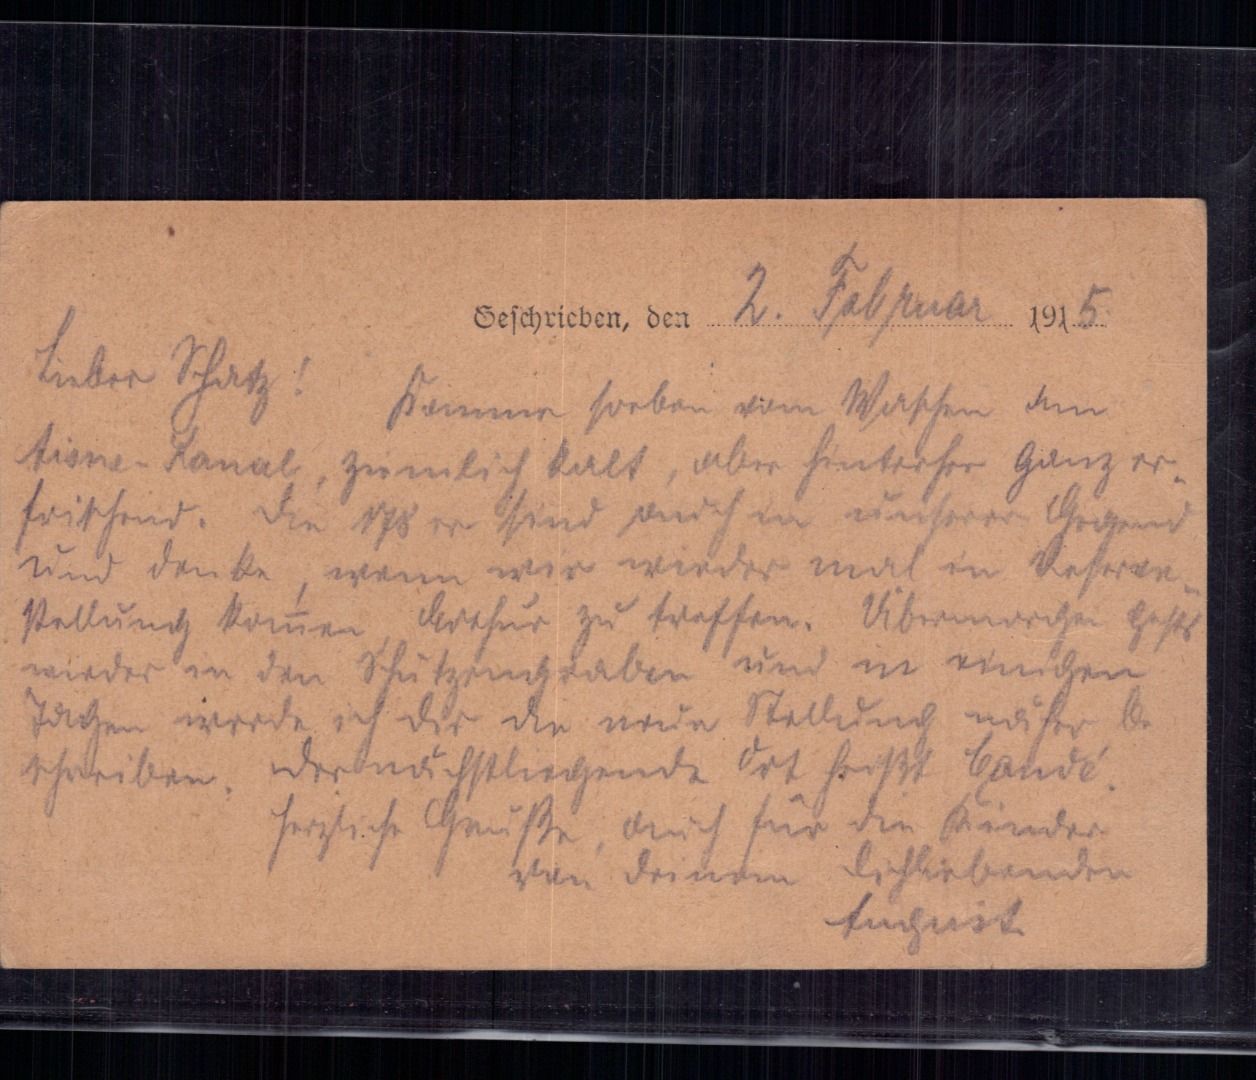 Geschrieben, den 2. Februar 1915
Lieber Schatz!
Komme soeben vom Waschen am
Aisne-Kanal, ziemlich kalt, aber hinterher ganz er-
frischend. Die 178er sind auch in unserer Gegend
und denke, wenn wir wieder mal in Reserve-
stellung kom̅en, Arthur zu treffen. Übermorgen gehts
wieder in den Schützengraben und in einigen
Tagen werde ich dir die neue Stellung näher be
schreiben. Der nächstliegende Ort heißt Condé.
Herzliche Grüße, auch für die Kinder
von deinem dichliebenden
August.